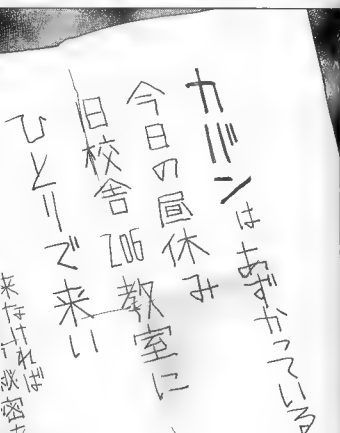 カバンはあずかっている
今日の昼休み
旧校舎206教室に
ひとりで来い
来なければ秘密を